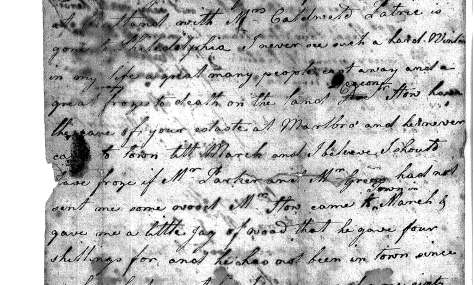 with Mrs Caldwell Patrie is
gone to Philadelphia I never see such a hard Winter
in my life a great many people cast away and a
great froze to death on the land Deacon How has
the care of your estate at Marlbro and he never
to town till March and I believe I should
have froze if Mr Parker and Mr Green had not
sent me some wood Mr How came to Town in March &
gave me a little jag of wood that he gave four
shillings for, and he has not been in town since